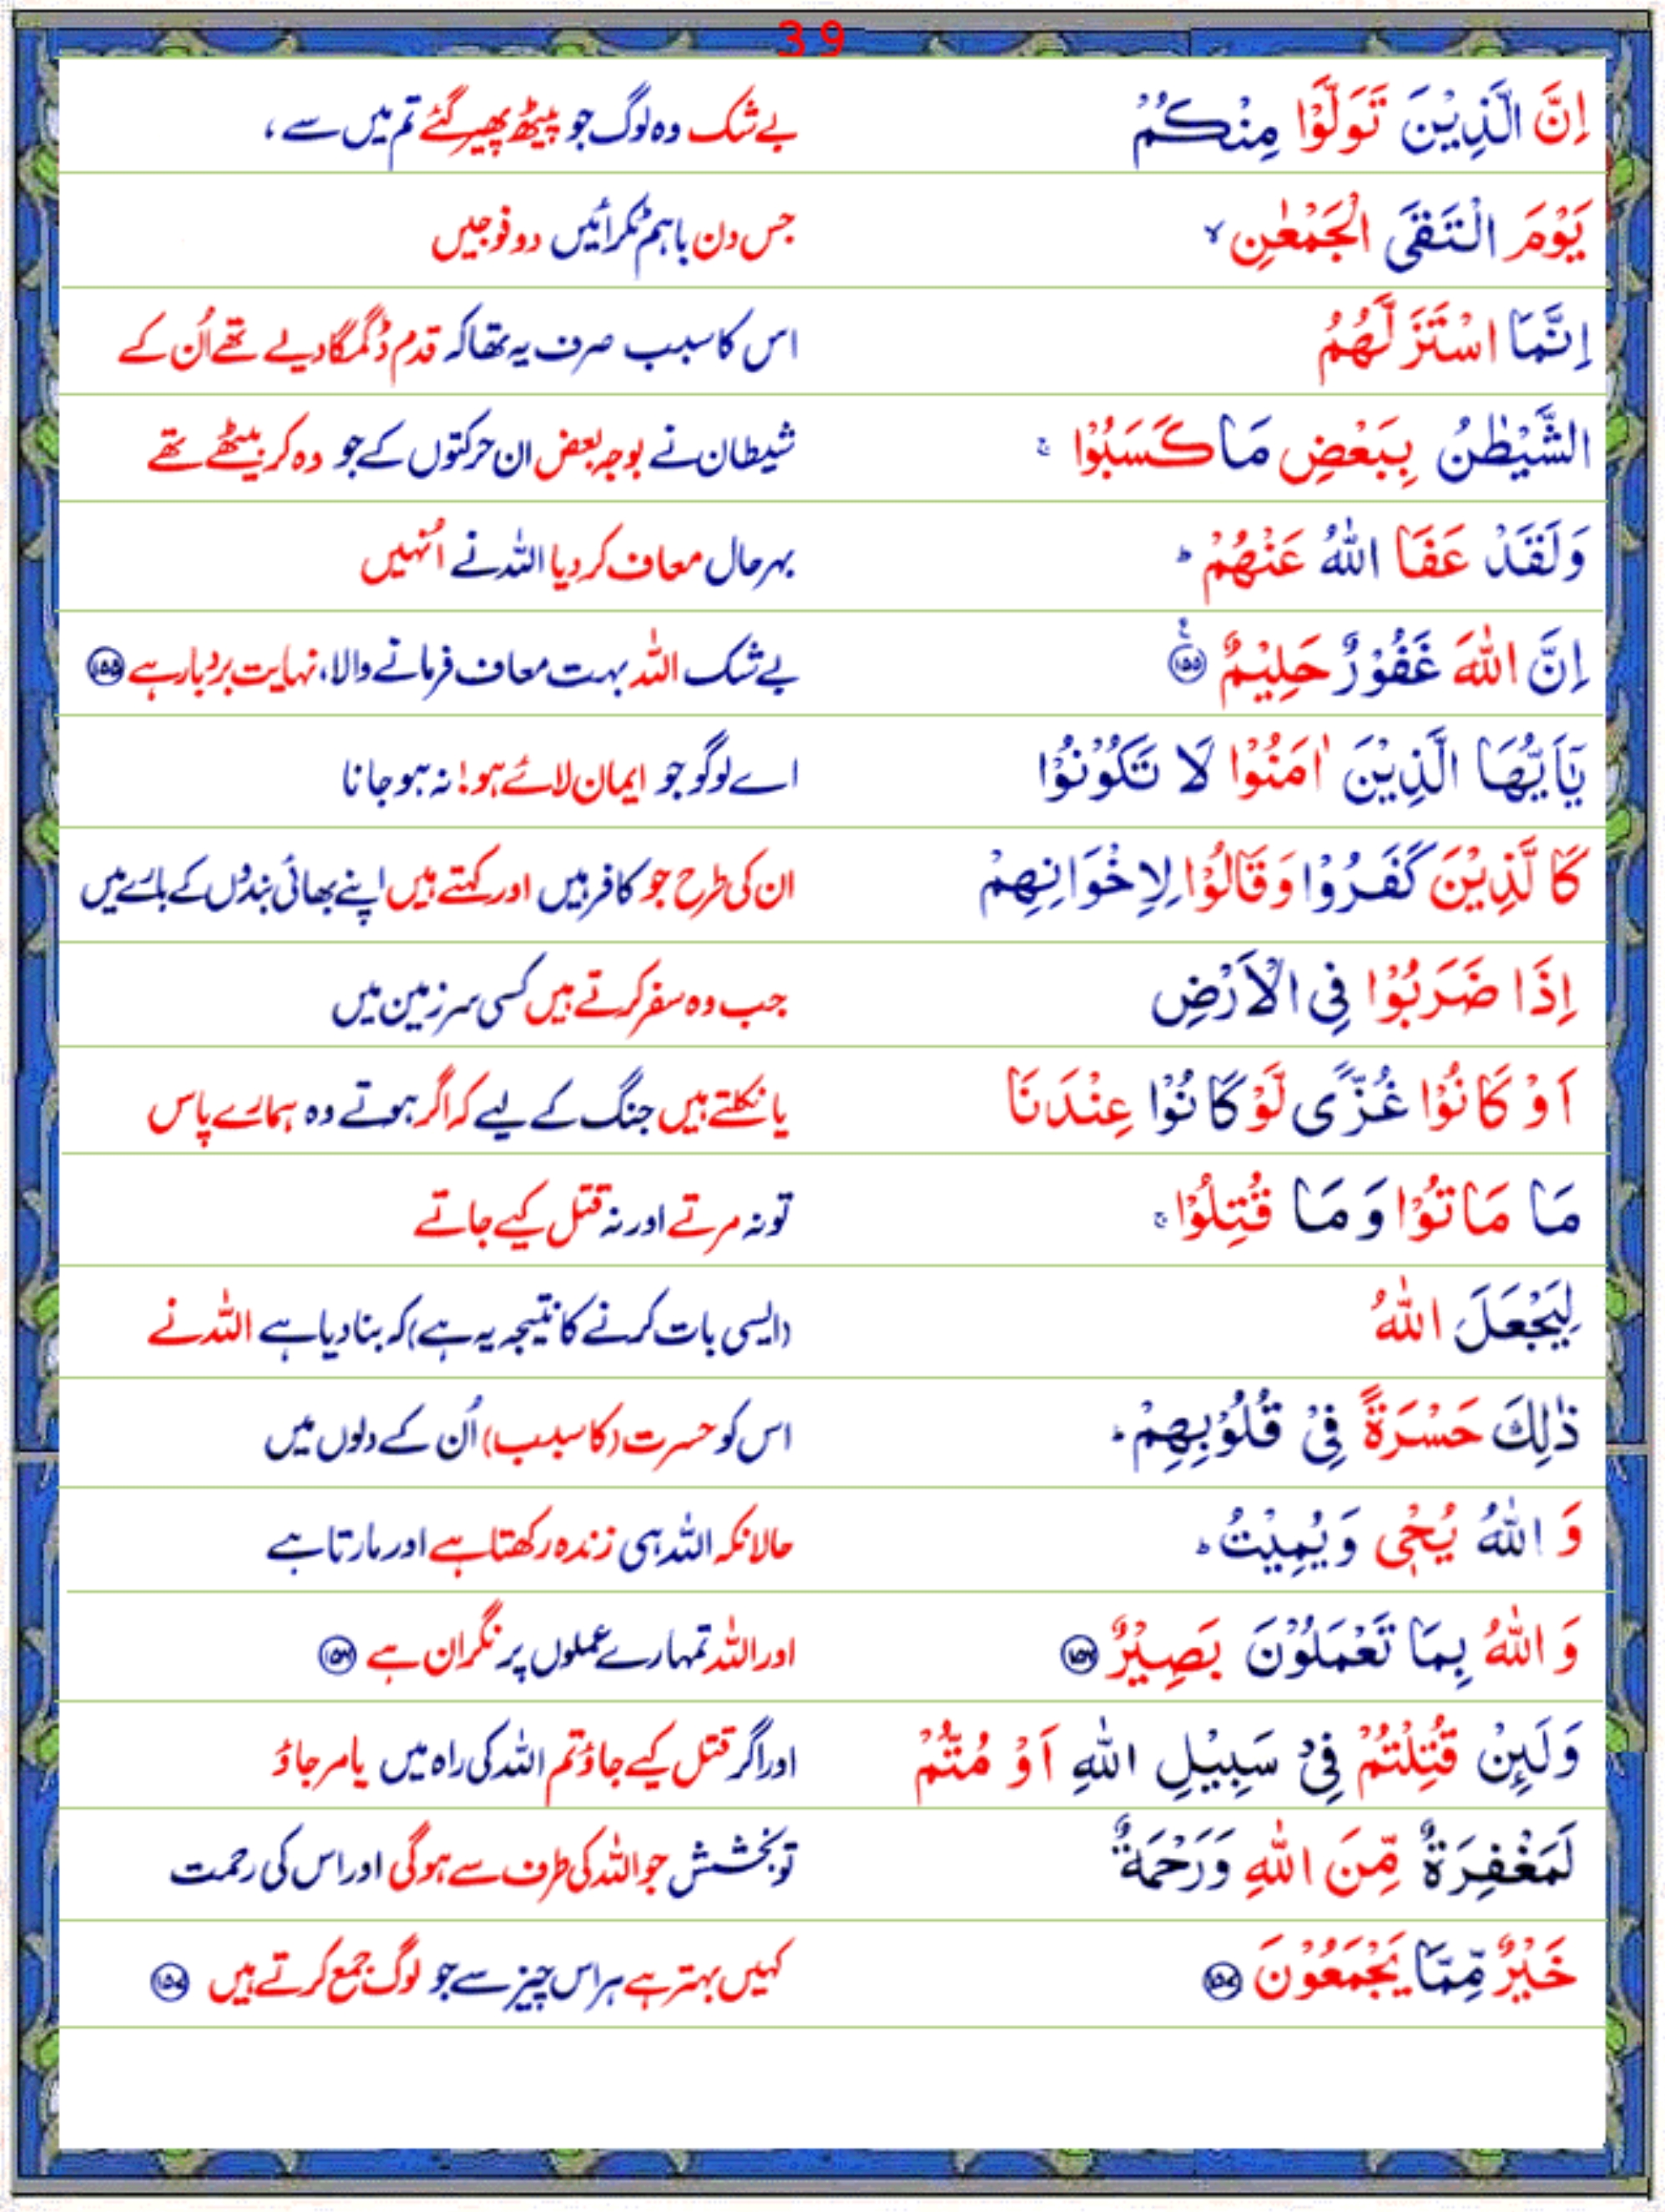 39
اِنَّ الَّذِيْنَ تَوَلَّوْا مِنْكُمْ
بے شک وہ لوگ جو پیٹھ پھیر گئے تم میں سے ،
يَوْمَ الْتَقَى الْجَمْعٰنِ ۙ
جس دن باہم ٹکرائیں دو فوجیں
اِنَّمَا اسْتَزَلَّهُمُ
اس کا سبب صرف یہ تھا کہ قدم ڈگمگا دیے تھے اُن کے
الشَّيْطٰنُ بِبَعْضِ مَا كَسَبُوْا ۚ
شیطان نے بوجہ بعض ان حرکتوں کے جو وہ کر بیٹھے تھے
وَلَقَدْ عَفَا اللّٰهُ عَنْهُمْ ؕ
بہرحال معاف کر دیا اللہ نے اُنہیں
اِنَّ اللّٰهَ غَفُوْرٌ حَلِيْمٌ ۧ ۝۱۵۵
بے شک اللہ بہت معاف فرمانے والا، نہایت بردبار ہے ۝۱۵۵
يٰۤاَيُّهَا الَّذِيْنَ اٰمَنُوْا لَا تَكُوْنُوْا
اے لوگو جو ایمان لائے ہو! نہ ہو جانا
كَالَّذِيْنَ كَفَرُوْا وَقَالُوْا لِاِخْوَانِهِمْ
ان کی طرح جو کافر ہیں اور کہتے ہیں اپنے بھائی بندوں کے بارے میں
اِذَا ضَرَبُوْا فِى الْاَرْضِ
جب وہ سفر کرتے ہیں کسی سرزمین میں
اَوْ كَانُوْا غُزًّى لَّوْ كَانُوْا عِنْدَنَا
یا نکلتے ہیں جنگ کے لیے کہ اگر ہوتے وہ ہمارے پاس
مَا مَاتُوْا وَمَا قُتِلُوْا ۚ
تو نہ مرتے اور نہ قتل کیے جاتے
لِيَجْعَلَ اللّٰهُ
(ایسی بات کرنے کا نتیجہ یہ ہے) کہ بنا دیا ہے اللہ نے
ذٰلِكَ حَسْرَةً فِىْ قُلُوْبِهِمْ ؕ
اس کو حسرت (کا سبب) اُن کے دلوں میں
وَ اللّٰهُ يُحْىٖ وَيُمِيْتُ ؕ
حالانکہ اللہ ہی زندہ رکھتا ہے اور مارتا ہے
وَ اللّٰهُ بِمَا تَعْمَلُوْنَ بَصِيْرٌ ۝۱۵۶
اور اللہ تمہارے عملوں پر نگران ہے ۝۱۵۶
وَلَئِنْ قُتِلْتُمْ فِىْ سَبِيْلِ اللّٰهِ اَوْ مُتُّمْ
اور اگر قتل کیے جاؤ تم اللہ کی راہ میں یا مر جاؤ
لَمَغْفِرَةٌ مِّنَ اللّٰهِ وَرَحْمَةٌ
تو بخشش جو اللہ کی طرف سے ہوگی اور اس کی رحمت
خَيْرٌ مِّمَّا يَجْمَعُوْنَ ۝۱۵۷
کہیں بہتر ہے ہر اس چیز سے جو لوگ جمع کرتے ہیں ۝۱۵۷